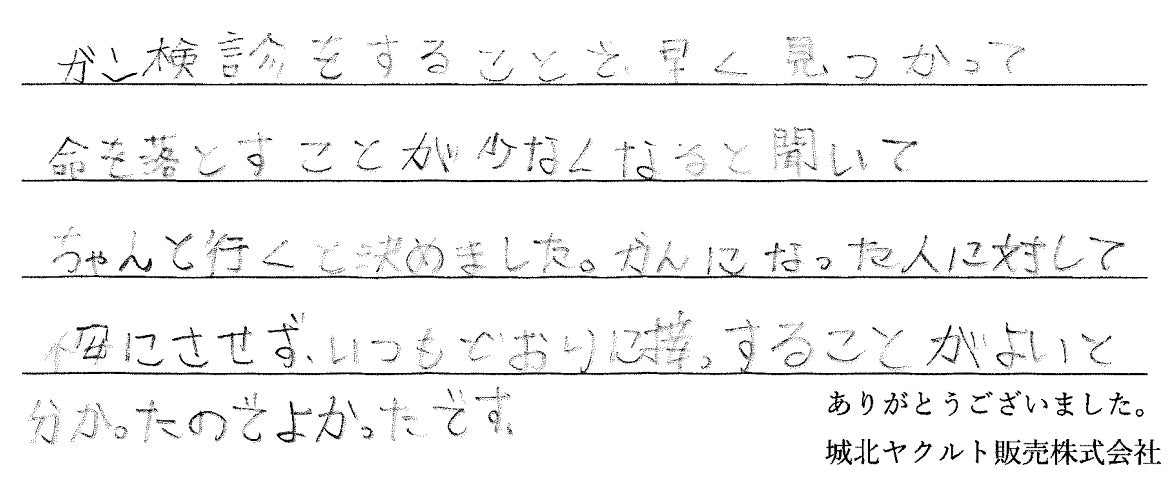 ガン検診をすることで、早く見つかって
命を落とすことが少なくなると聞いて
ちゃんと行くと決めました。がんになった人に対して
にさせず、いつもどおりに接っすることがよいと
分かったのでよかったです。
ありがとうございました。
城北ヤクルト販売株式会社